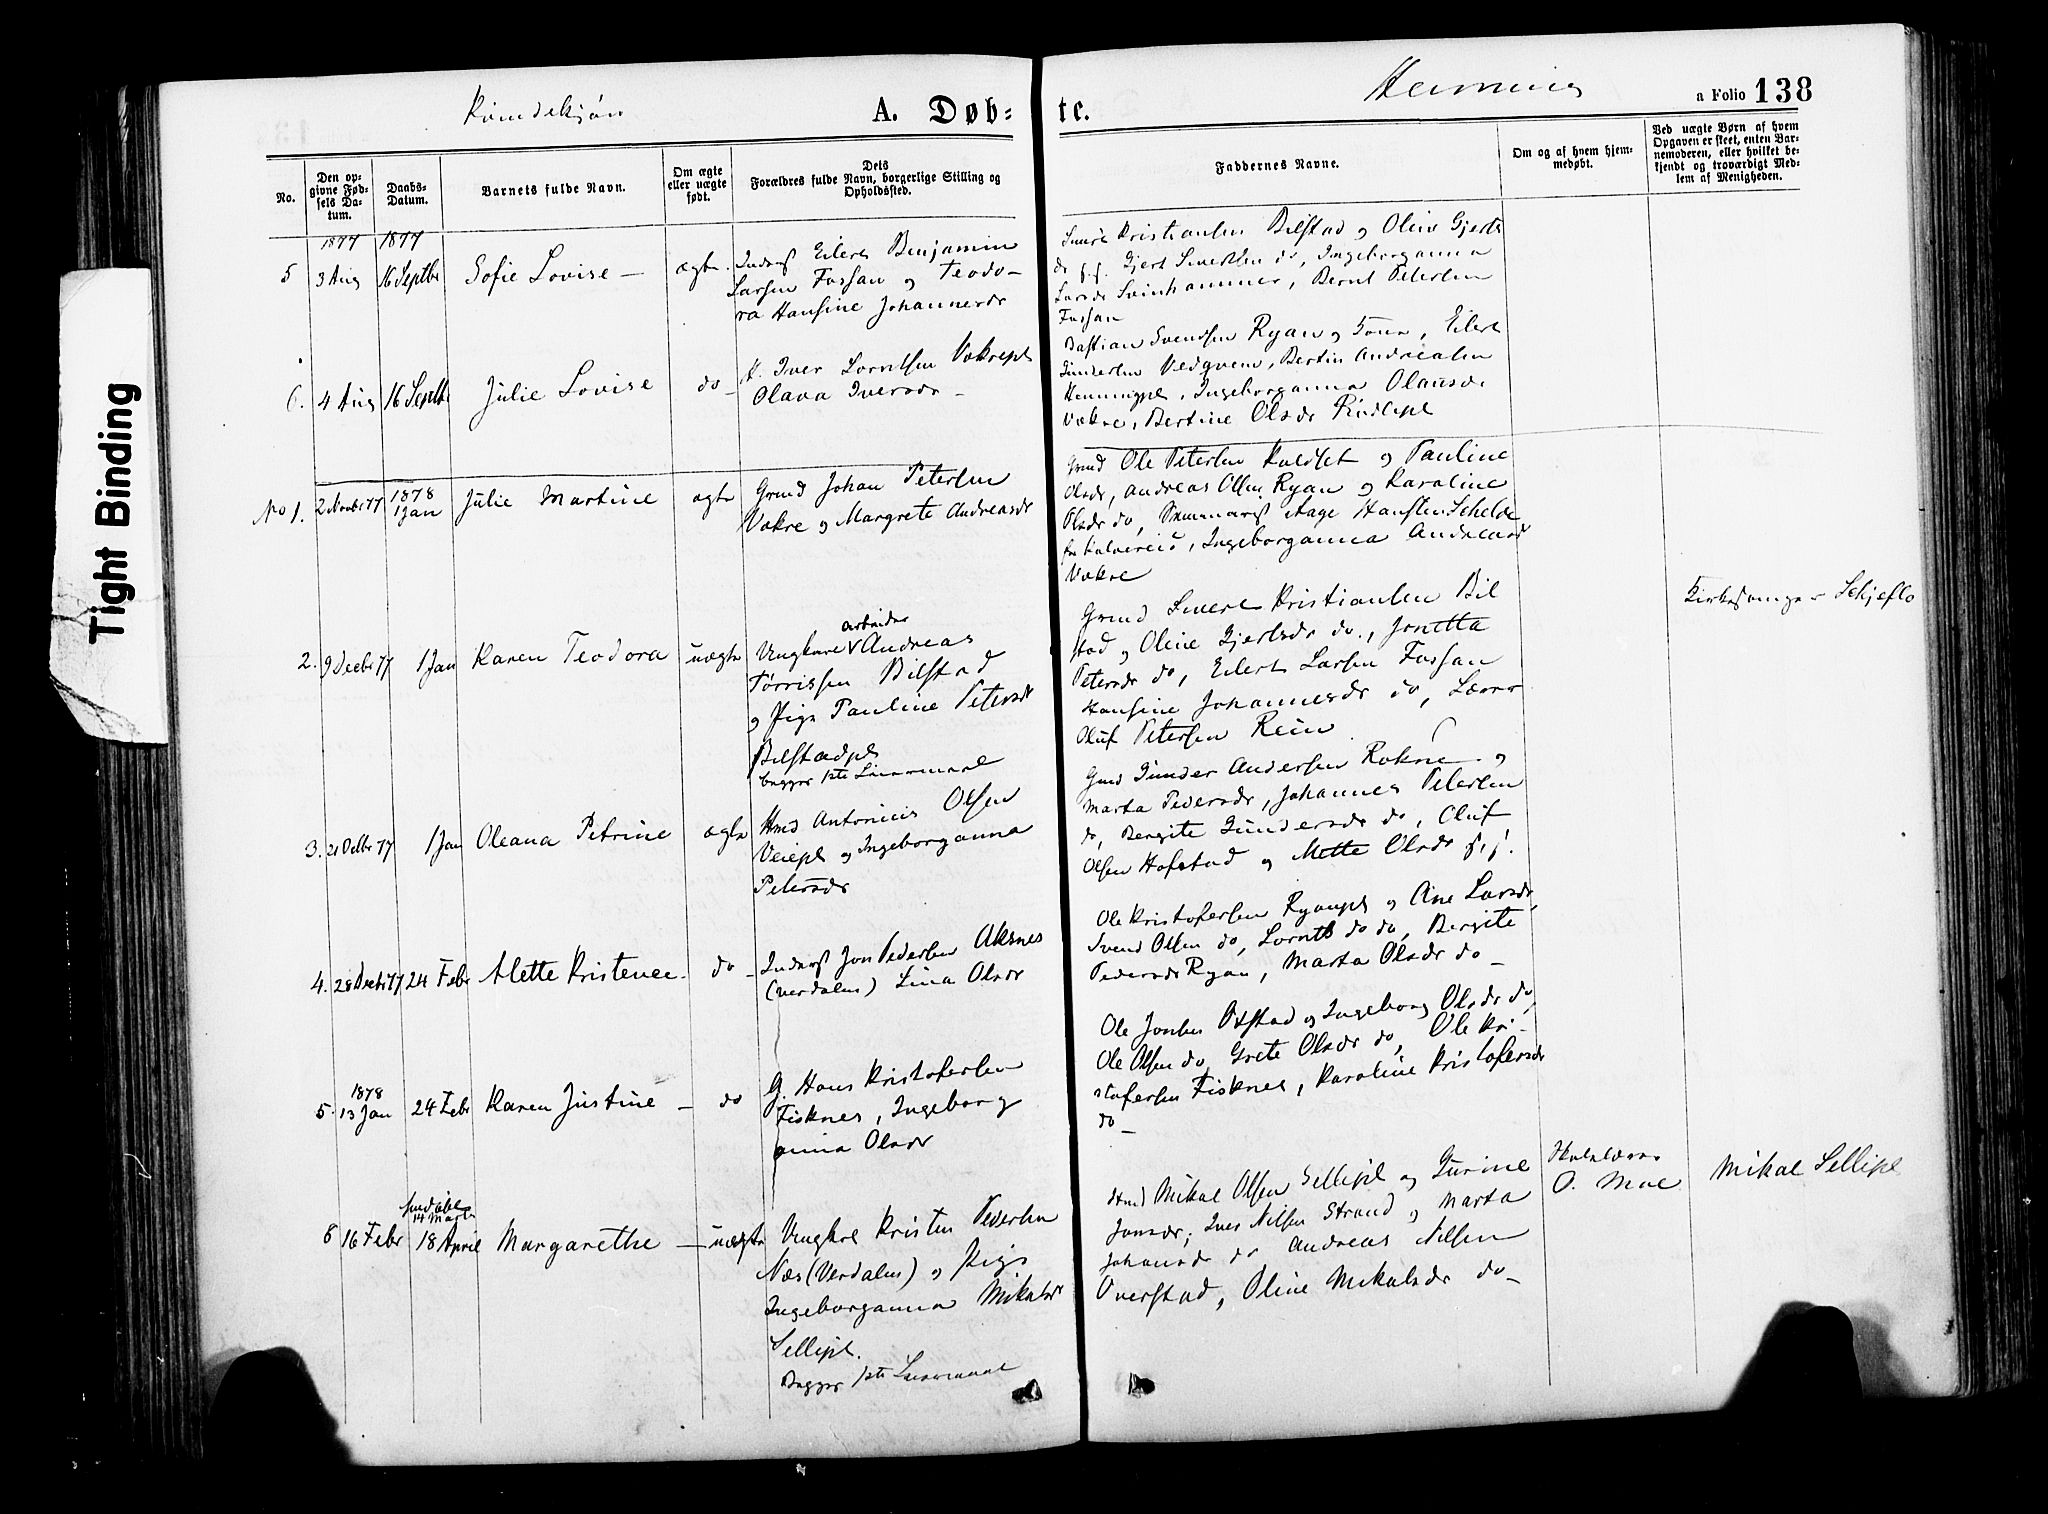 Tight Binding
Kvindekjøn
A. Døb-
te.
Henning
a Folio 138
No.
Den opgivne Fødsels Datum.
Daabs-Datum.
Barnets fulde Navn.
Om ægte eller uægte født.
Dets Forældres fulde Navn, borgerlige Stilling og Opholdssted.
Faddernes Navne.
Om og af hvem hjemmedøbt.
Ved uægte Børn af hvem Opgaven er skeet, enten Barnemoderen, eller hvilket bekjendt og troværdigt Medlem af Menigheden.
1877 1877
5 3 Aug 16 Septbr Sofie Lovise — ægte
Inderst Eilert Benjamin
Larsen Fossan og Teodo-
ra Hansine Johannesdr
Kristiansen Bilstad og Oline Gjertsd
do f.f. Gjert Sivertsen do, Ingeborganna
Larsdr Svinhammer, Bernt Petersen
Fossan
6. 4 Aug 16 Septbr Julie Lovise do
H. Iver Lorntsen Vækrepl
Olava Iversdr —
Bastian Svendsen Ryan og Kone, Eilert
Gundersen Vedqvem, Bertin Andreassen
Henningpl, Ingeborganna Olausdr
Vækre, Bertine Olsdr
No 1. 2 Novbr 77 1878 1 Jan Julie Martine ægte
Grmd Johan Petersen
Vækre og Margrete Andreasdr
Grmd Ole Petersen og Pauline
Olsdr, Andreas Olsen Ryan og Karoline
Olsdr do, Seminarist Aage Hansen
Ingeborganna Andreasdr
Vækre
2. 9 Decbr 77 1 Jan Karen Teodora uægte
Ungkarl arbeider Andreas
Tørrissen Bilstad
og Pige Pauline Petersdr
Bilstadpl
begges 1ste Leiermaal
Grmd Sivert Kristiansen Bil
stad og Oline Gjertsdr do., Jonetta
Petersdr do, Eilert Larsen Fossan
Hansine Johannesdr do, Lærer
Oluf Petersen Rein
Kirkesanger Schjeflo
3. 21 Octbr 77 1 Jan Oleana Petrine ægte
Hmd Antonius Olsen
Veiepl og Ingeborganna
Petersdr
Gmd Gunder Andersen Rokne og
Marta Pedersdr, Johannes Petersen
do, Bergite Gundersdr do, Oluf
Olsen Hofstad og Mette Olsdr f.f.
4. 28 Decbr 77 24 Febr Alette Kristense do
Inderst Jon Pedersen Aksnes
(Verdalen) Lina Olsdr
Ole Kristofersen Ryanpl og Ane Larsdr,
Svend Olsen do, Lornts do do, Bergite
Pedersdr Ryan, Marta Olsdr do —
1878
5. 13 Jan 24 Febr Karen Justine — do
G. Hans Kristofersen
Fisknes, Ingeborg
anna Olsdr
Ole Jonsen Østad og Ingeborg Olsdr do,
Ole Olsen do, Grete Olsdr do, Ole Kri-
stofersen Fisknes, Karoline Kristofersdr
do —
14 Marts
6 16 Febr 18 April Margarethe — uægte
Ungkarl Kristen Pedersen
Næs (Verdalen) og Pige
Ingeborganna Mikalsdr
Sellipl.
Begges 1ste Leiermaal
Hmd Mikal Olsen Sellipl og Gurine
Jonsdr; Iver Nilsen Strand og Marta
Johansdr do Andreas Nilsen
Overstad, Oline Mikalsdr do —
O. Moe
Mikal Sellipl